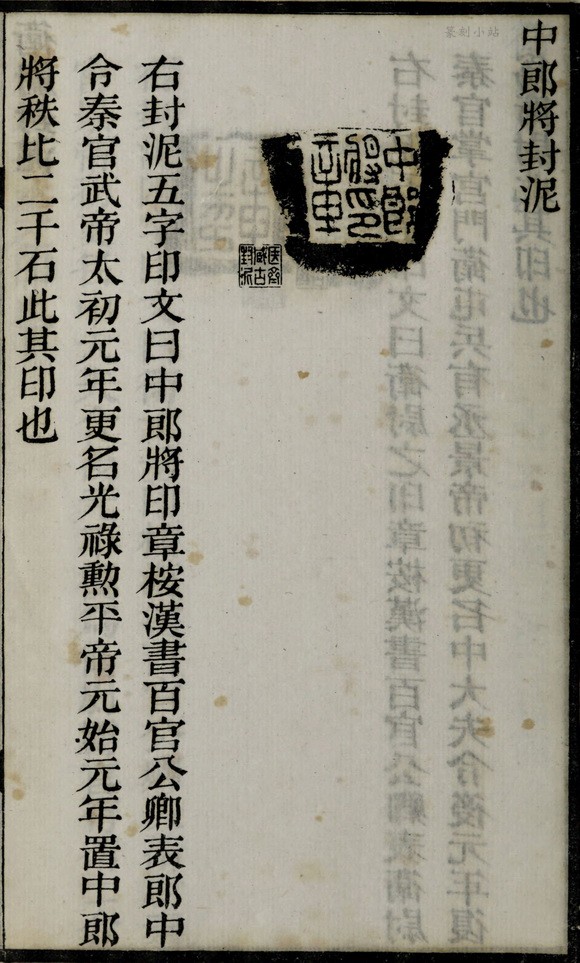 篆刻小站
中郎將封泥
中郎將印章
右封泥五字印文曰中郎將印章桉漢書百官公卿表郎中
令秦官武帝太初元年更名光祿勳平帝元始元年置中郎
將秩比二千石此其印也